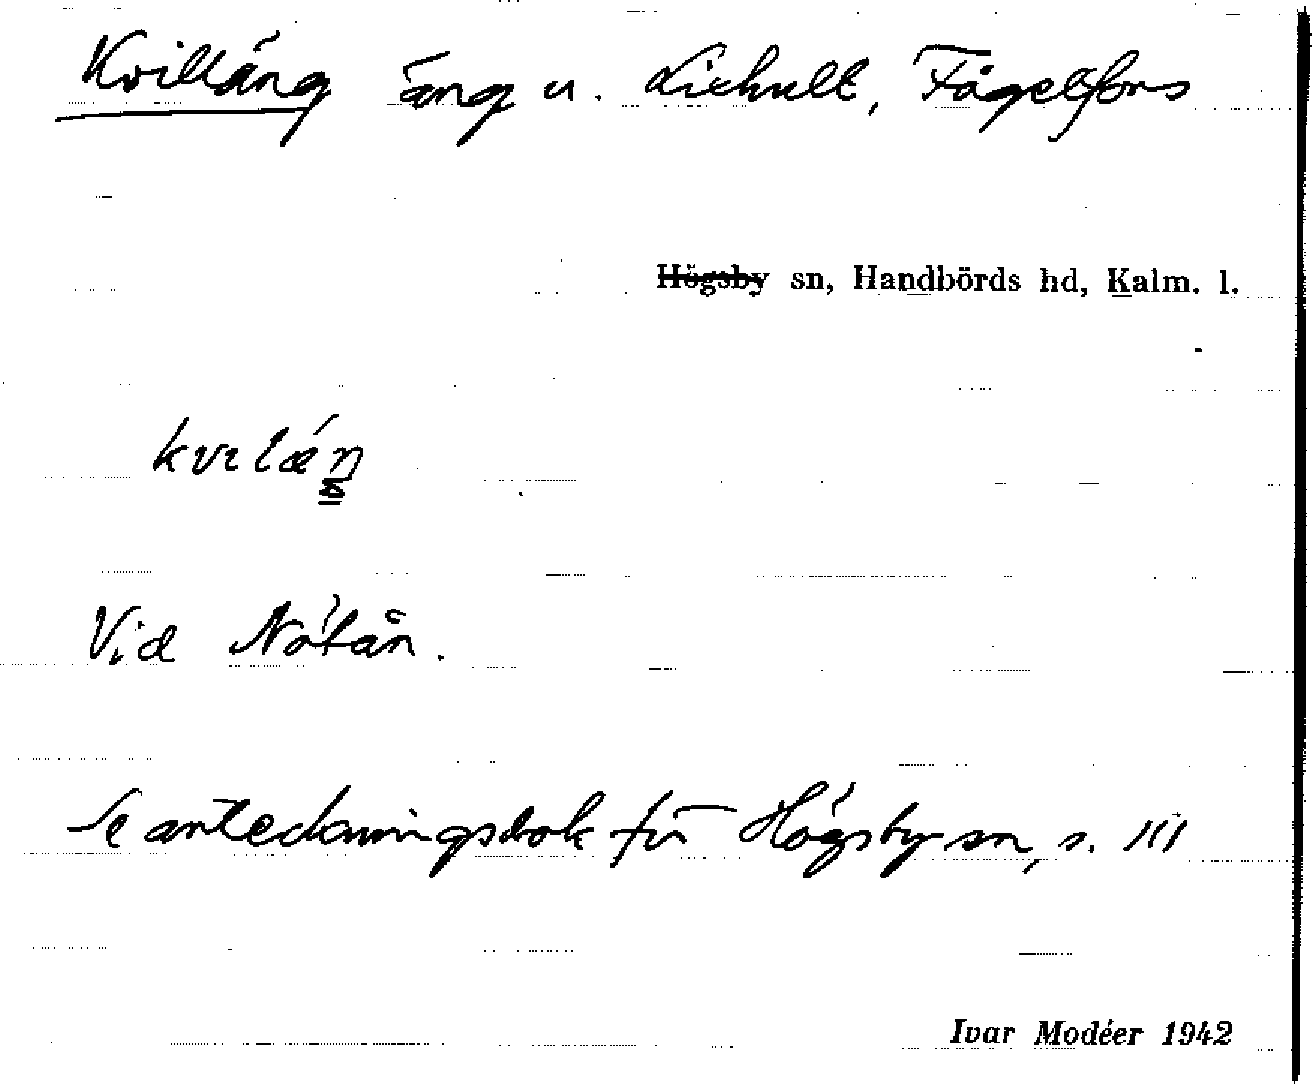 Kvilläng äng u. Lixhult, Fågelfors
Högsby sn, Handbörds hd, Kalm. l.
Vid Nötån.
Se anteckningsbok för Högsby sn, s. 111
Ivar Modéer 1942